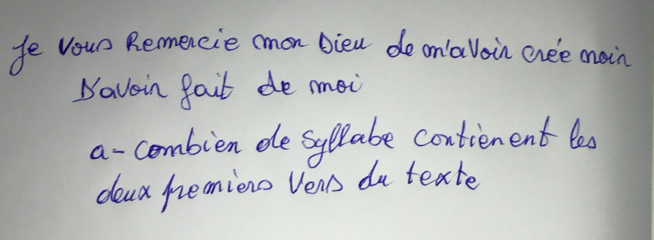 Je vous Remercie mon Dieu de m'avoir crée noir
D'avoir fait de moi
a- combien de syllabe contiènent les
deux premiers vers du texte